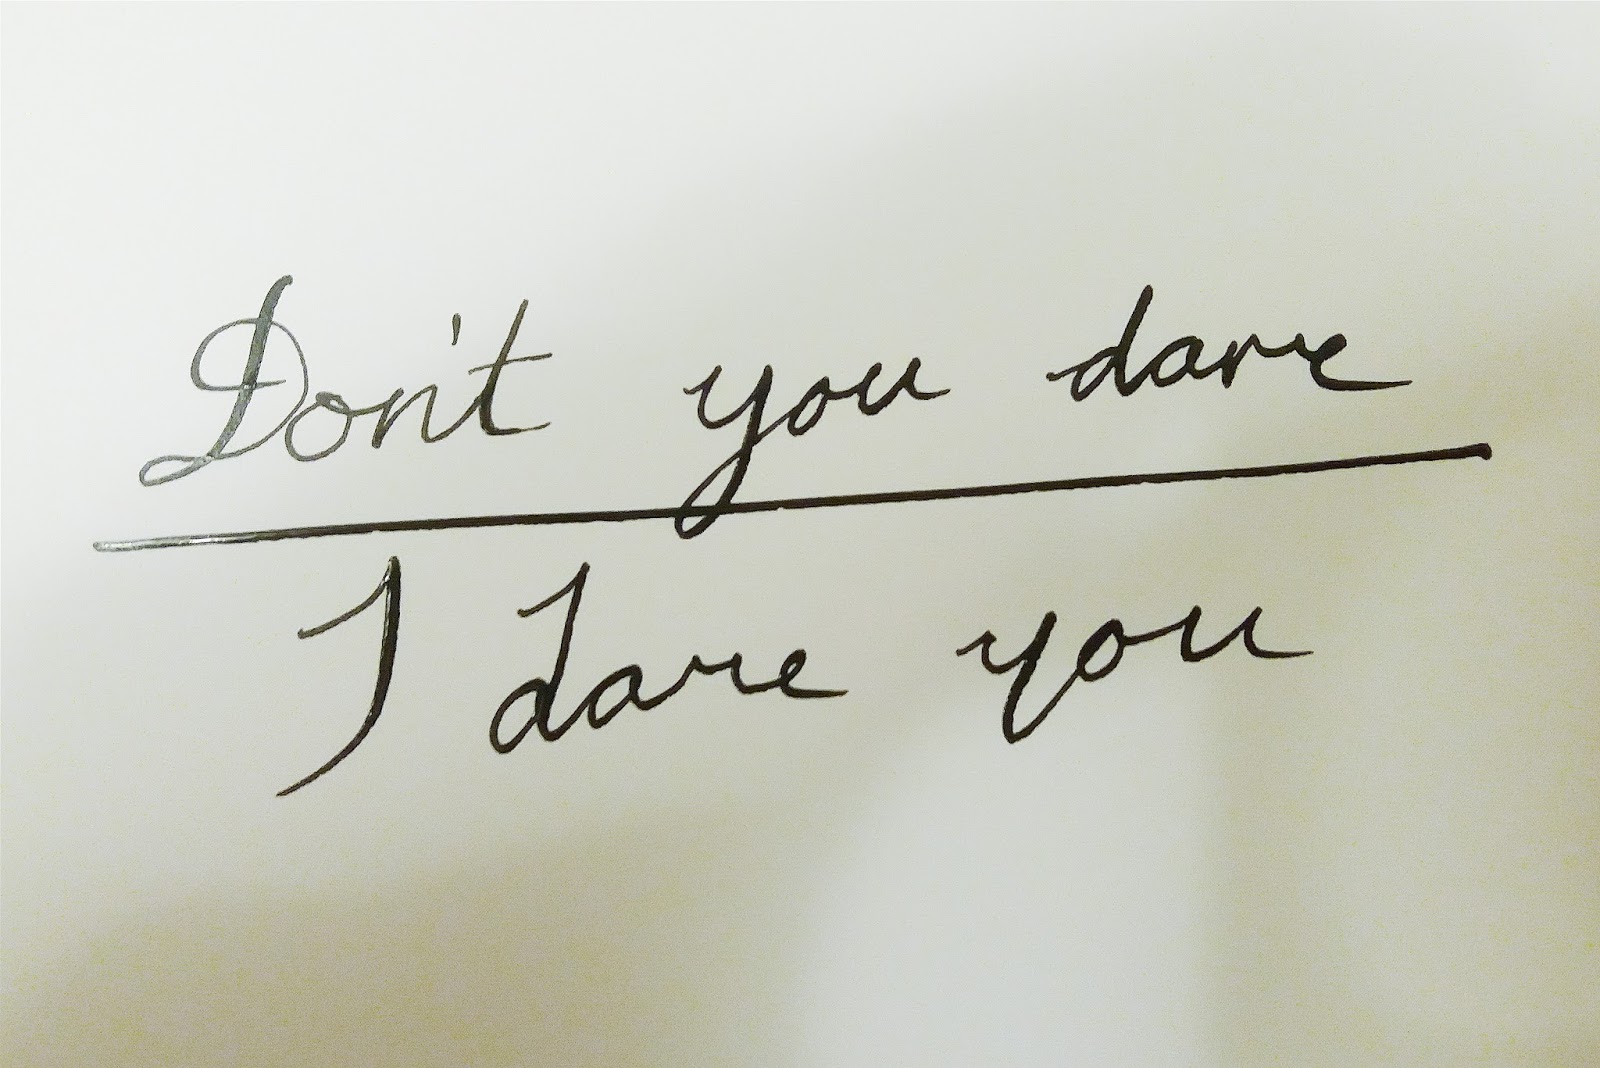 Don't you dare
I dare you